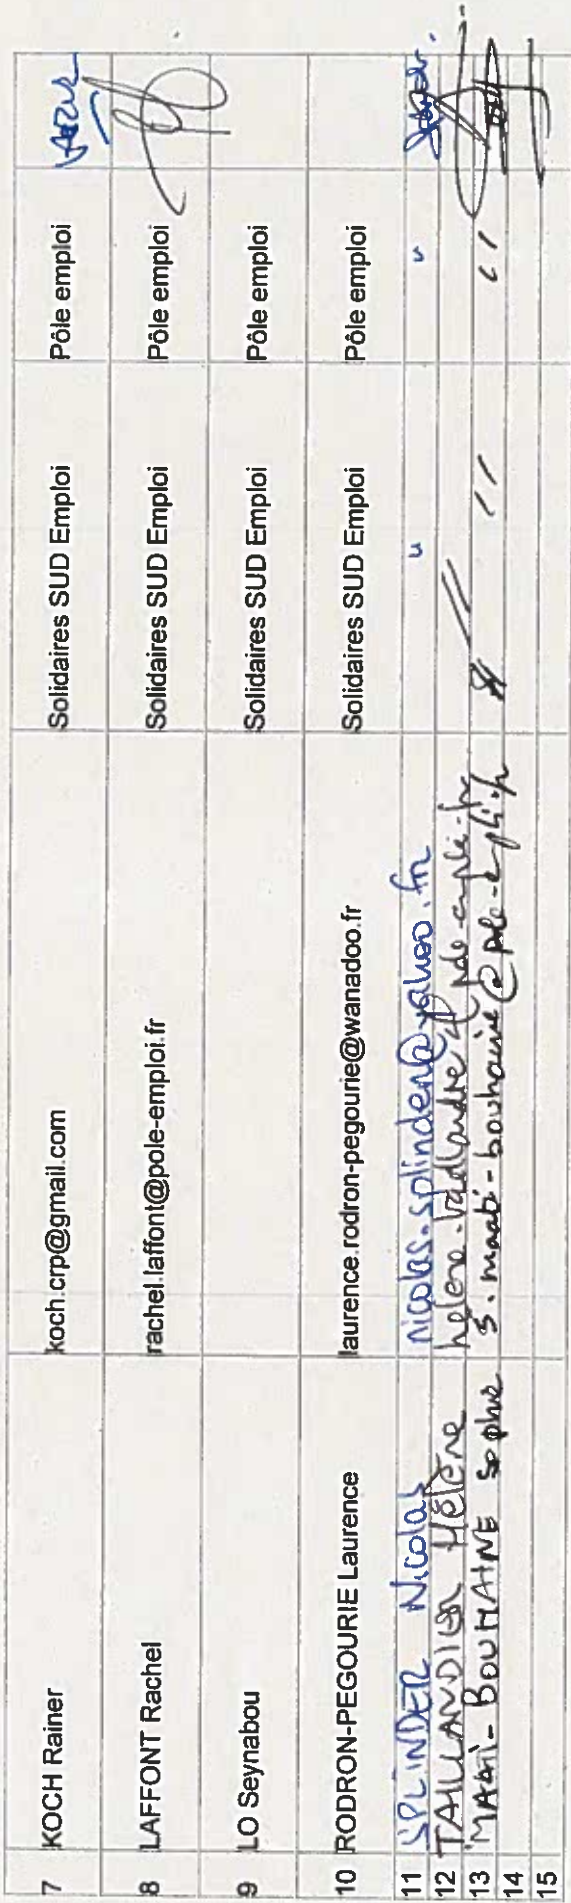 7 KOCH Rainer koch.crp@gmail.com Solidaires SUD Emploi Pôle emploi
8 LAFFONT Rachel rachel.laffont@pole-emploi.fr Solidaires SUD Emploi Pôle emploi
9 LO Seynabou Solidaires SUD Emploi Pôle emploi
10 RODRON-PEGOURIE Laurence laurence.rodron-pegourie@wanadoo.fr Solidaires SUD Emploi Pôle emploi
11 SPLINDER Nicolas nicolas.splinder@yahoo.fr " "
12 TAILLANDIER Hélène //
13 MAATI-BOUHAINE Sophie // //
14
15